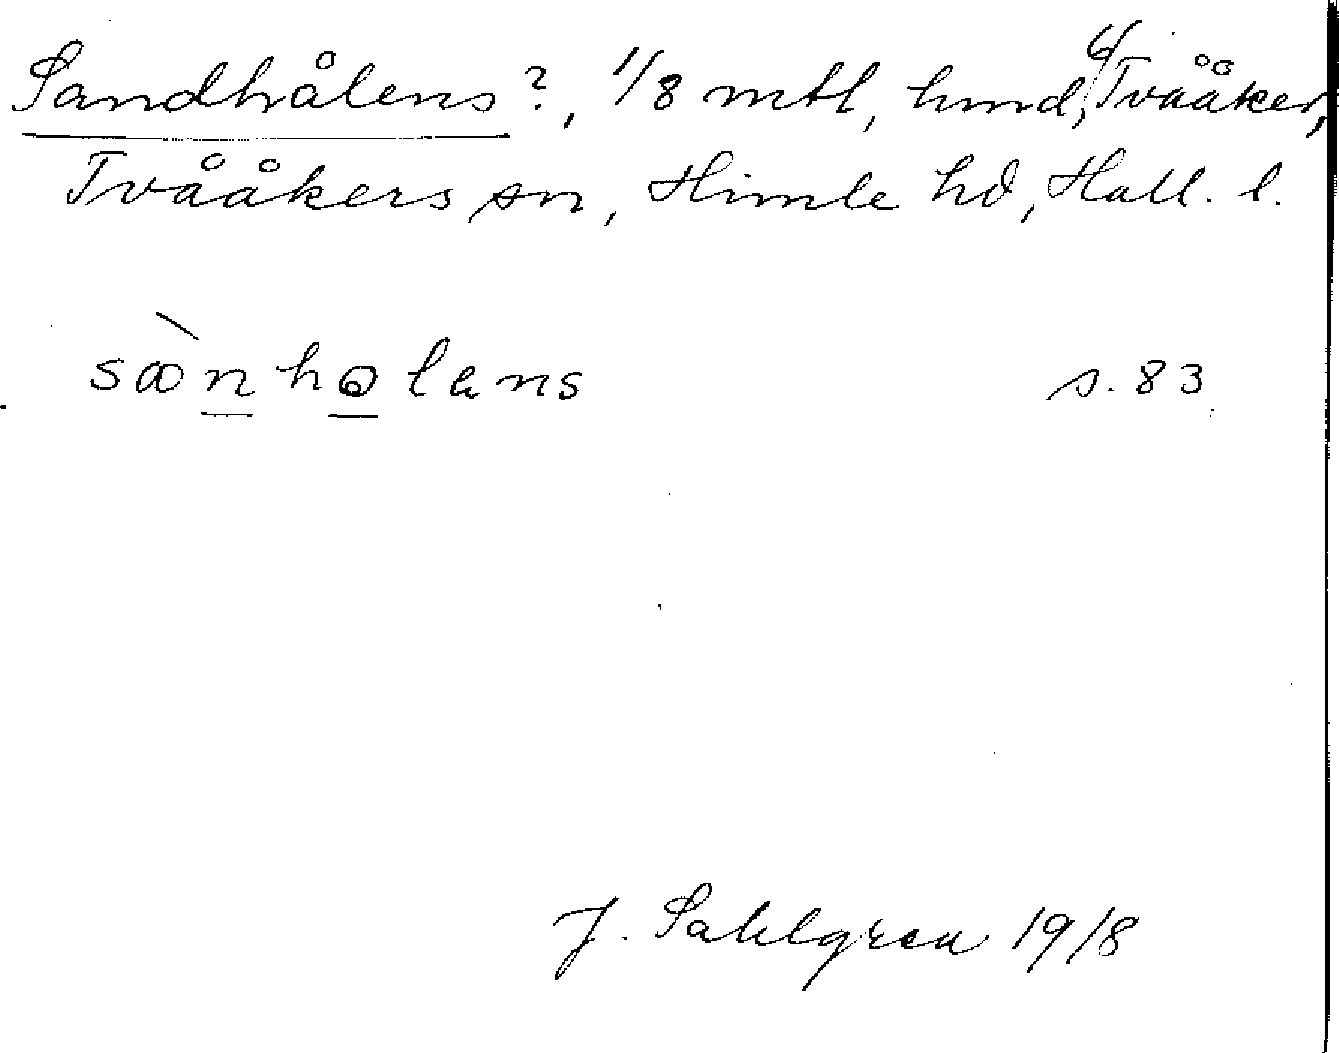 Sandhålens?, 1/8 mtl, hmd, u/ Tvååker,
Tvååkers sn, Himle hd, Hall. l.
sànholens s. 83
J. Sahlgren 1918